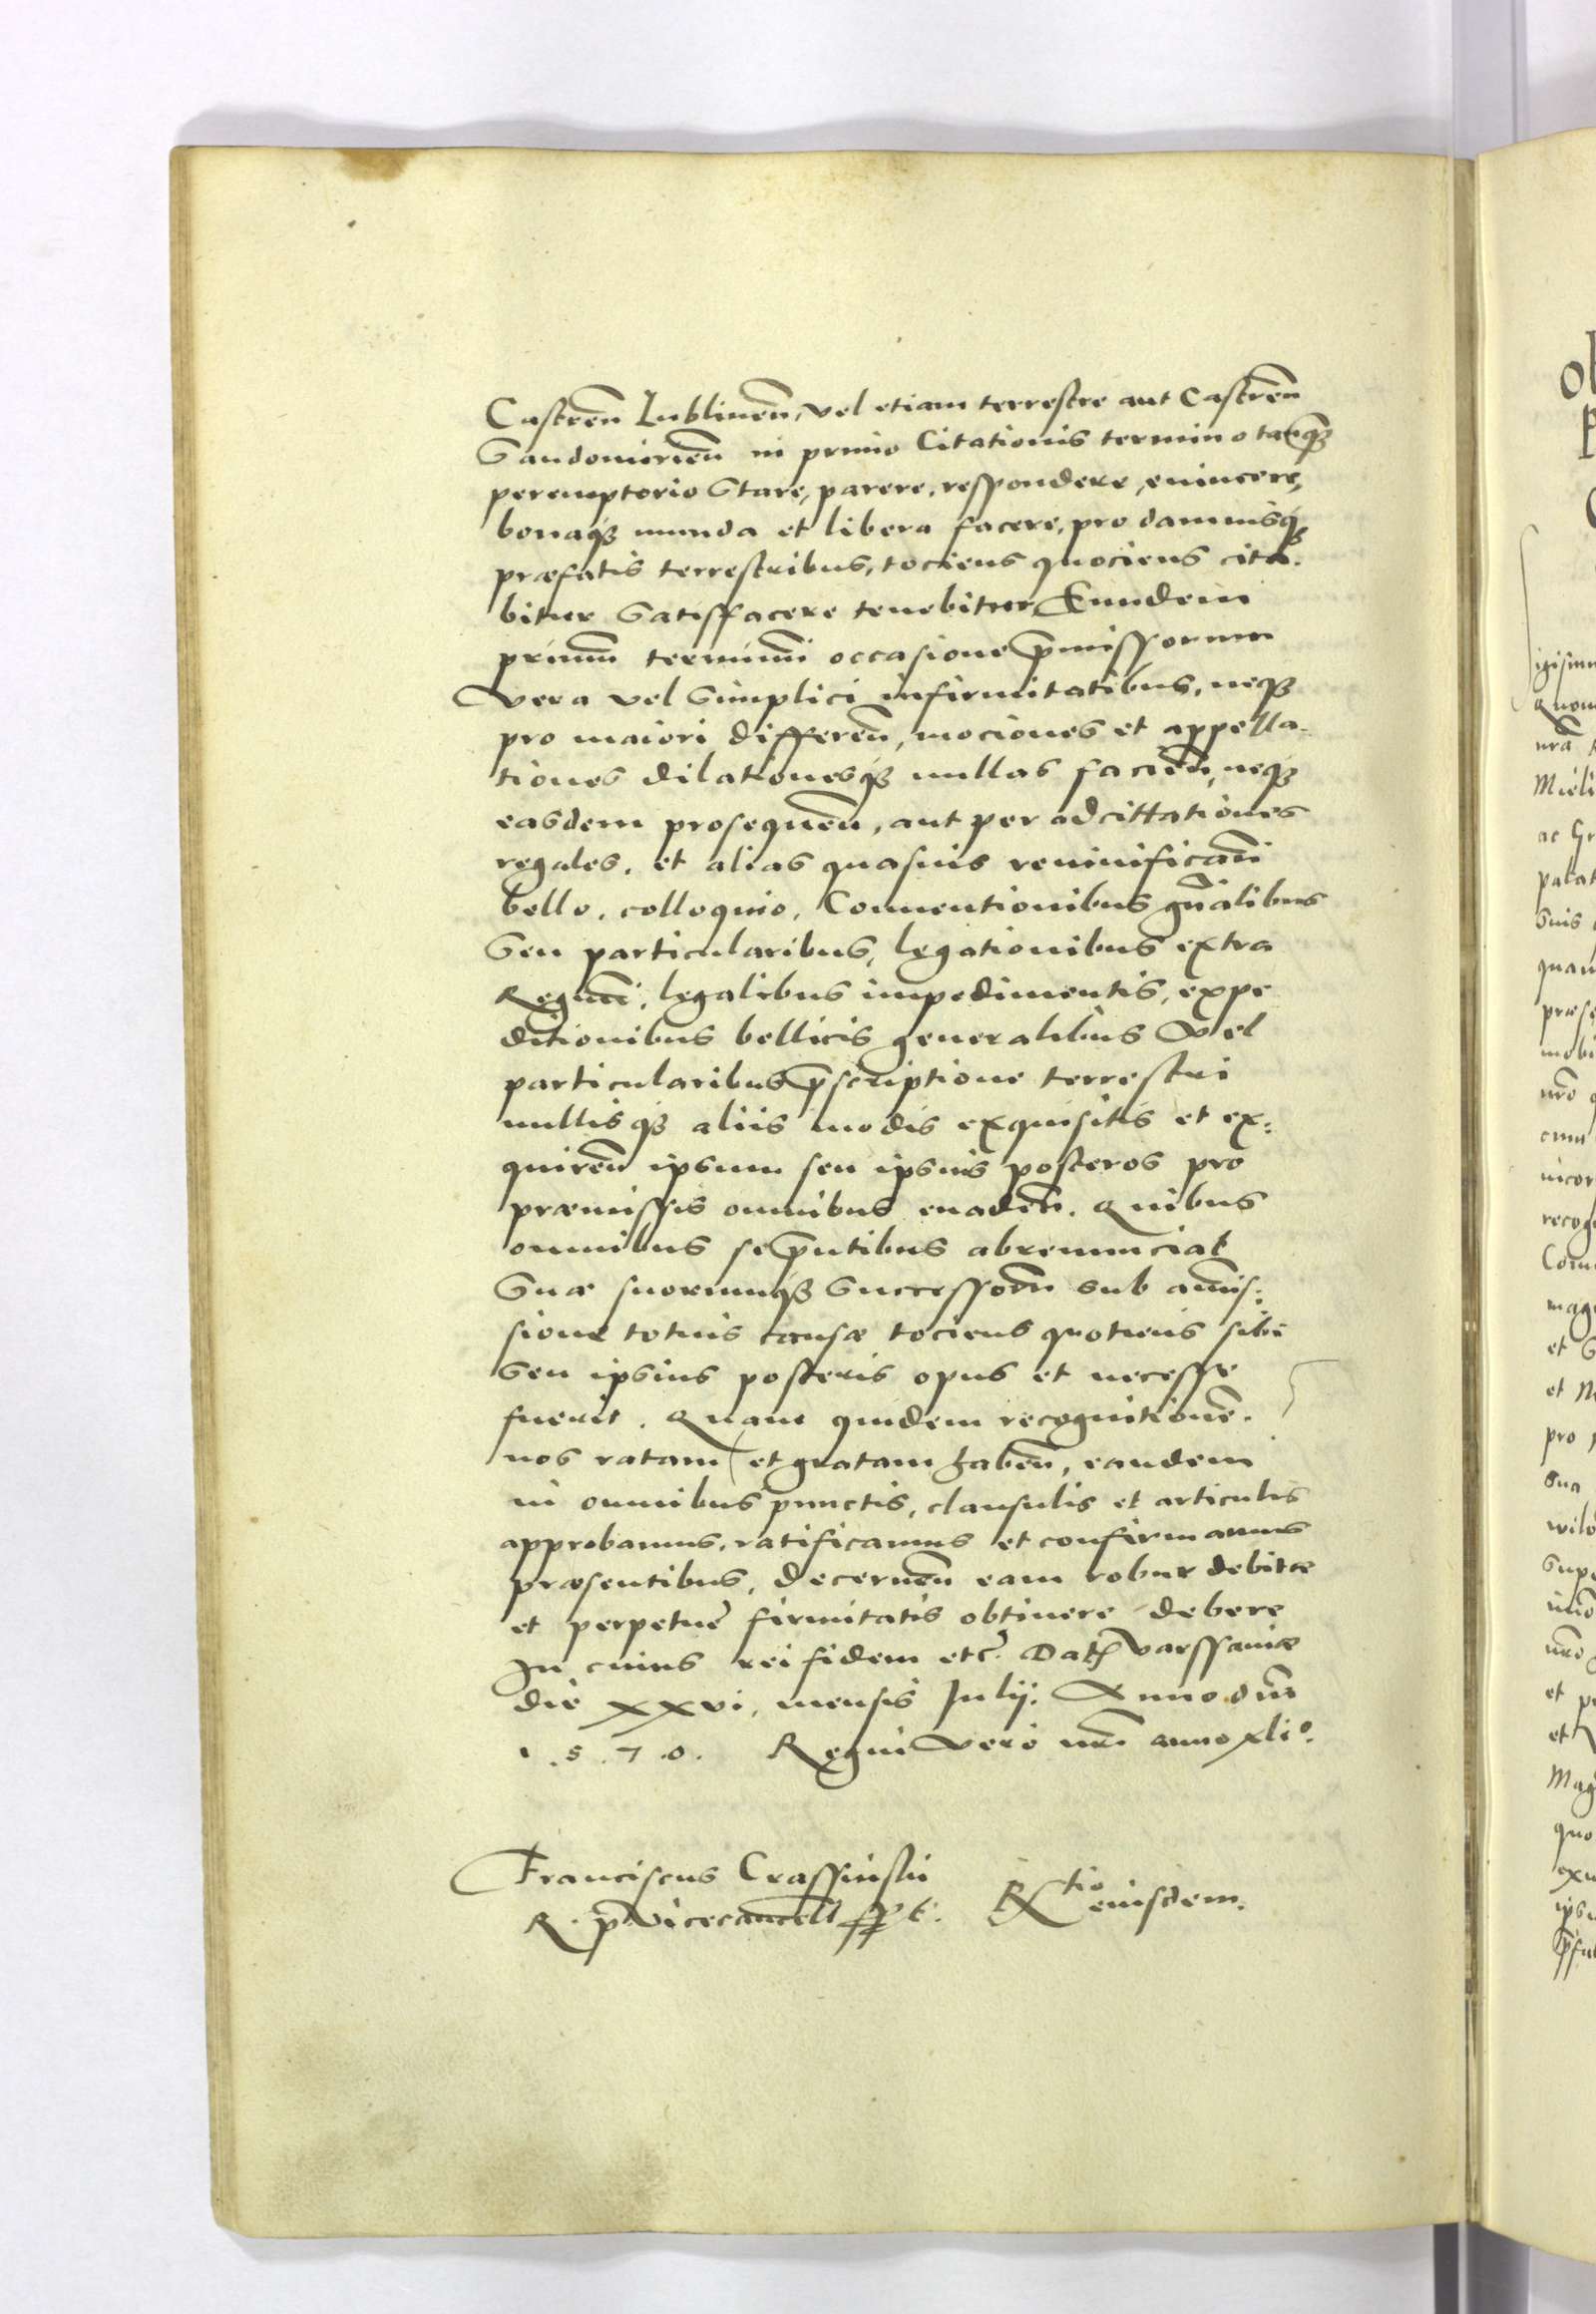 Castreñ Lublineñ, vel etiam terrestre aut Castreñ
Sandomirieñ in primo Citationis termino tanqȝ
peremptorio stare, parere, respondere, evincere,
bonaqȝ munda et libera facere, pro damnisqȝ
præfatis terrestribus, tociens quociens cita-
bitur satisfacere tenebitur Eundem
primũ terminũ occasione p̃missorum
vera vel simplici infirmitatibus, neqȝ
pro maiori differeñ, mociones et appella-
tiones dilationesqȝ nullas facieñ, neqȝ
easdem prosequeñ, aut per adcittationes
regales, et alias quasuis reuiuificañ
bello, colloquio, Conuentionibus gñalibus
seu particularibus, legationibus extra
Regnũ, legalibus impedimentis, expe
ditionibus bellicis generalibus vel
particularibus p̃scriptione terrestri
nullisqȝ aliis modis exquisitis et ex:
quireñ ipsum seu ipsius posteros pro
præmissis omnibus euadeñ. Quibus
omnibus se p̃ntibus abrenunciat
suæ suorumqȝ successorũ sub amis:
sione totius causæ tociens quotiens sibi
seu ipsius posteris opus et necesse
fuerit. Quam quidem recognitionẽ.
nos ratam et gratam habeñ, eandem
in omnibus punctis, clausulis et articulis
approbamus, ratificamus et confirmamus
præsentibus, decerneñ eam robur debitæ
et perpetuæ firmitatis obtinere debere
In cuius rei fidem etc̃. Dat Varssauiæ
die xxvi, mensis Julij. Anno dñi
1.5.7.0. Regni vero nr̃i anno xli°.
Franciscus Crassinskii
R. p̃. Vicecancell sspt. Rtio eiusdem.